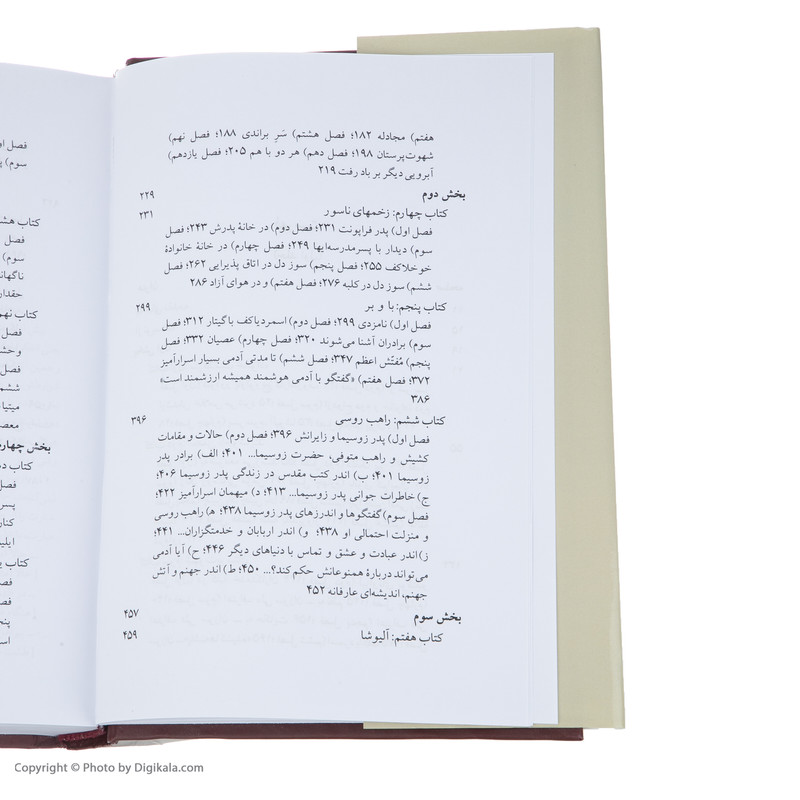 هفتم) مجادله ۱۸۲؛ فصل هشتم) سَرِ براندی ۱۸۸؛ فصل نهم)
شهوت‌پرستان ۱۹۸؛ فصل دهم) هر دو با هم ۲۰۵؛ فصل یازدهم)
آبرویی دیگر بر باد رفت ۲۱۹
بخش دوم ۲۲۹
کتاب چهارم: زخمهای ناسور ۲۳۱
فصل اول) پدر فراپونت ۲۳۱؛ فصل دوم) در خانهٔ پدرش ۲۴۳؛ فصل
سوم) دیدار با پسرمدرسه‌ایها ۲۴۹؛ فصل چهارم) در خانهٔ خانوادهٔ
خوخلاکف ۲۵۵؛ فصل پنجم) سوز دل در اتاق پذیرایی ۲۶۲؛ فصل
ششم) سوز دل در کلبه ۲۷۶؛ فصل هفتم) و در هوای آزاد ۲۸۶
کتاب پنجم: با و بر ۲۹۹
فصل اول) نامزدی ۲۹۹؛ فصل دوم) اسمردیاکف با گیتار ۳۱۲؛ فصل
سوم) برادران آشنا می‌شوند ۳۲۰؛ فصل چهارم) عصیان ۳۳۲؛ فصل
پنجم) مُفتّش اعظم ۳۴۷؛ فصل ششم) تا مدتی آدمی بسیار اسرارآمیز
۳۷۲؛ فصل هفتم) «گفتگو با آدمی هوشمند همیشه ارزشمند است»
۳۸۶
کتاب ششم: راهب روسی ۳۹۶
فصل اول) پدر زوسیما و زایرانش ۳۹۶؛ فصل دوم) حالات و مقامات
کشیش و راهب متوفی، حضرت زوسیما... ۴۰۱؛ الف) برادر پدر
زوسیما ۴۰۱؛ ب) اندر کتب مقدس در زندگی پدر زوسیما ۴۰۶؛
ج) خاطرات جوانی پدر زوسیما... ۴۱۳؛ د) میهمان اسرارآمیز ۴۲۲؛
فصل سوم) گفتگوها و اندرزهای پدر زوسیما ۴۳۸؛ ه) راهب روسی
و منزلت احتمالی او ۴۳۸؛ و) اندر اربابان و خدمتگزاران... ۴۴۱؛
ز) اندر عبادت و عشق و تماس با دنیاهای دیگر ۴۴۶؛ ح) آیا آدمی
می‌تواند دربارهٔ همنوعانش حکم کند؟... ۴۵۰؛ ط) اندر جهنم و آتش
جهنم، اندیشه‌ای عارفانه ۴۵۲
بخش سوم ۴۵۷
کتاب هفتم: آلیوشا ۴۵۹
فصل
سوم)
کتاب
فصل
سوم)
ناگهان
حقدار
کتاب نهم
فصل
فصل
ششم
معص
بخش چهار
کتاب
فصل
پسر
کنار
کتاب
Copyright © Photo by Digikala.com